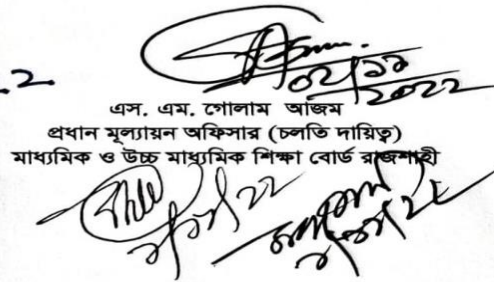 .2
০২/১১
২০২২
এস. এম. গোলাম আজম
প্রধান মূল্যায়ন অফিসার (চলতি দায়িত্ব)
মাধ্যমিক ও উচ্চ মাধ্যমিক শিক্ষা বোর্ড রাজশাহী